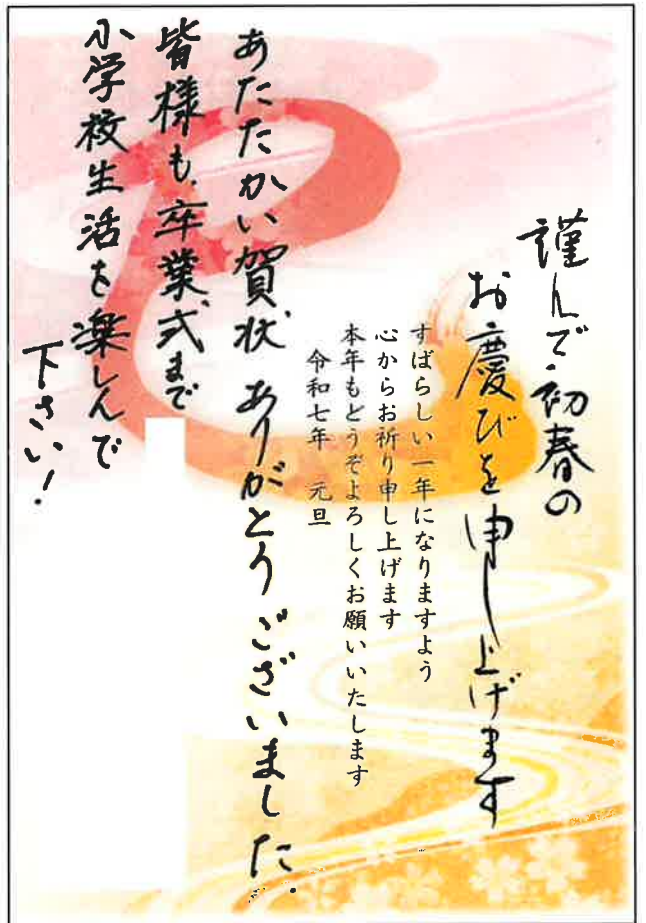 謹んで初春の
お慶びを申し上げます
すばらしい一年になりますよう
心からお祈り申し上げます
本年もどうぞよろしくお願いいたします
令和七年 元旦
あたたかい賀状ありがとうございました。
皆様も、卒業式まで
小学校生活を楽しんで
下さい!